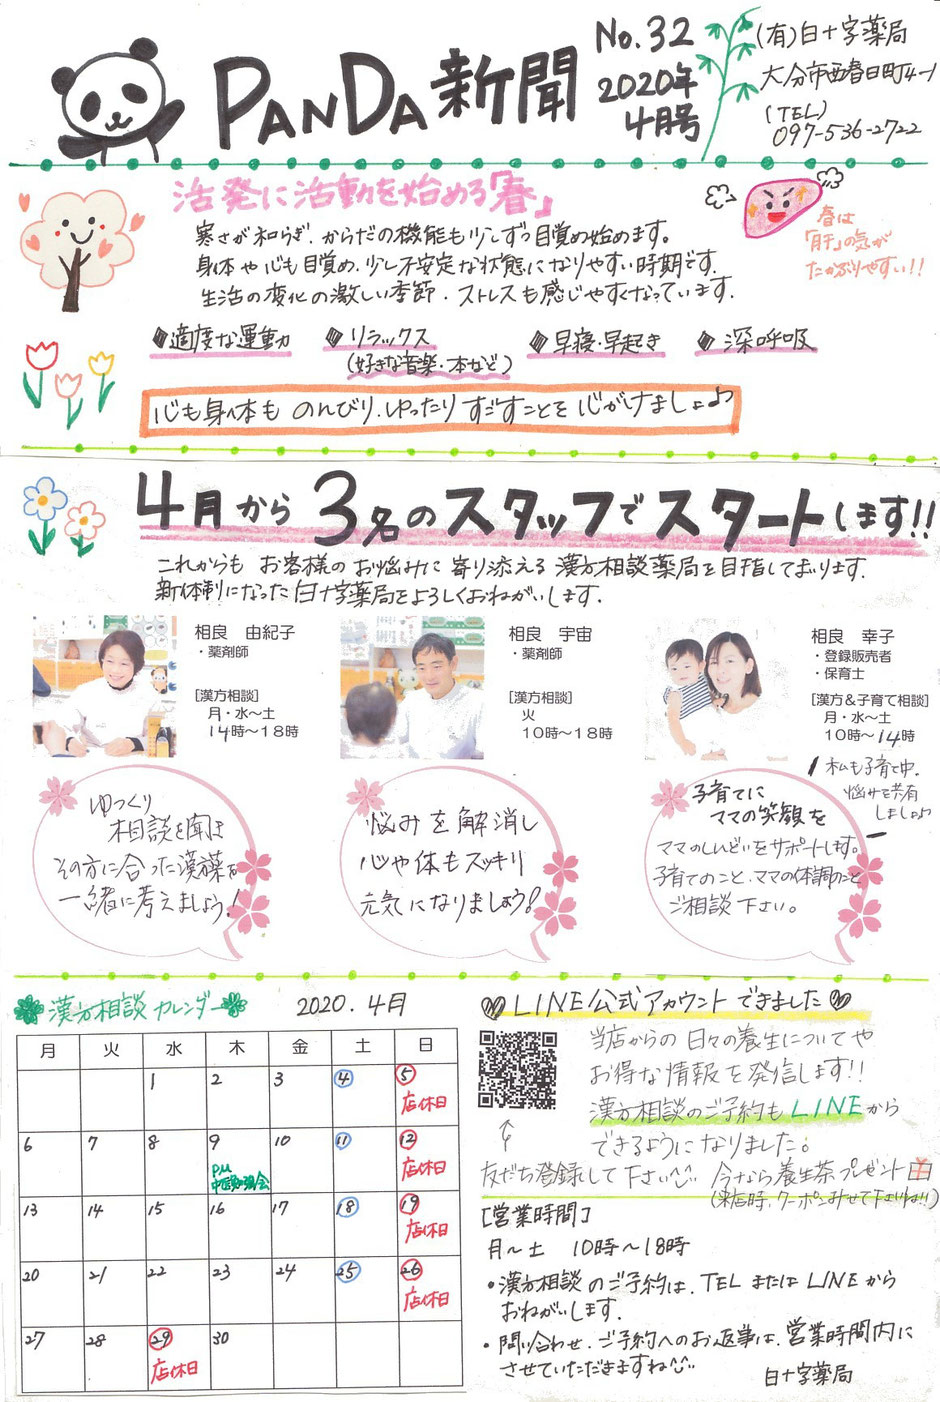 PANDA新聞
No.32
2020年
4月号
(有)白十字薬局
大分市西春日町4-1
(TEL)
097-536-2722
活発に活動を始める「春」
寒さが和らぎ、からだの機能も少しずつ目覚め始めます。
身体や心も目覚め、少し不安定な状態になりやすい時期です。
生活の変化の激しい季節、ストレスも感じやすくなっています。
春は
「肝」の気が
たかぶりやすい!!
◆適度な運動 ◆リラックス ◆早寝・早起き ◆深呼吸
(好きな音楽・本など)
心も身体も のんびり、ゆったりすごすことを心がけましょ♪
4月から3名のスタッフでスタートします!!
これからも お客様の お悩みに 寄り添える 漢方相談薬局を目指してまいります。
新体制になった白十字薬局をよろしくおねがいします。
相良 由紀子
・薬剤師
[漢方相談]
月・水〜土
14時〜18時
相良 宇宙
・薬剤師
[漢方相談]
火
10時〜18時
相良 幸子
・登録販売者
・保育士
[漢方&子育て相談]
月・水〜土
10時〜14時
私も子育て中。
悩みを共有
しましょ♪
ゆっくり
相談を聞き
その方に合った漢方薬を
一緒に考えましょう!
悩みを解消し
心や体もスッキリ
元気になりましょう!
子育てに
ママの笑顔を
ママのしんどいをサポートします。
子育てのこと、ママの体調のこと
ご相談下さい。
漢方相談カレンダー 2020.4月
月 火 水 木 金 土 日
1 2 3 4 5
店休日
6 7 8 9 10 11 12
PM
中医勉強会
店休日
13 14 15 16 17 18 19
店休日
20 21 22 23 24 25 26
店休日
27 28 29 30
店休日
LINE公式アカウントできました
当店からの日々の養生についてや
お得な情報を発信します!!
漢方相談のご予約もLINEから
できるようになりました。
友だち登録して下さい 今なら養生茶プレゼント
(来店時、クーポンみせて下さいね!!)
[営業時間]
月〜土 10時〜18時
・漢方相談のご予約は、TELまたはLINEから
おねがいします。
・問い合わせ、ご予約へのお返事は、営業時間内に
させていただきますね
白十字薬局